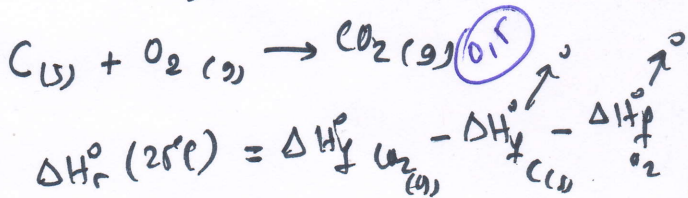 C(s) + O₂ (g) → CO₂ (g) 0,5
ΔH°r (25°C) = ΔH°f CO₂(g) - ΔH°f C(s) ↗ 0 - ΔH°f O₂ ↗ 0